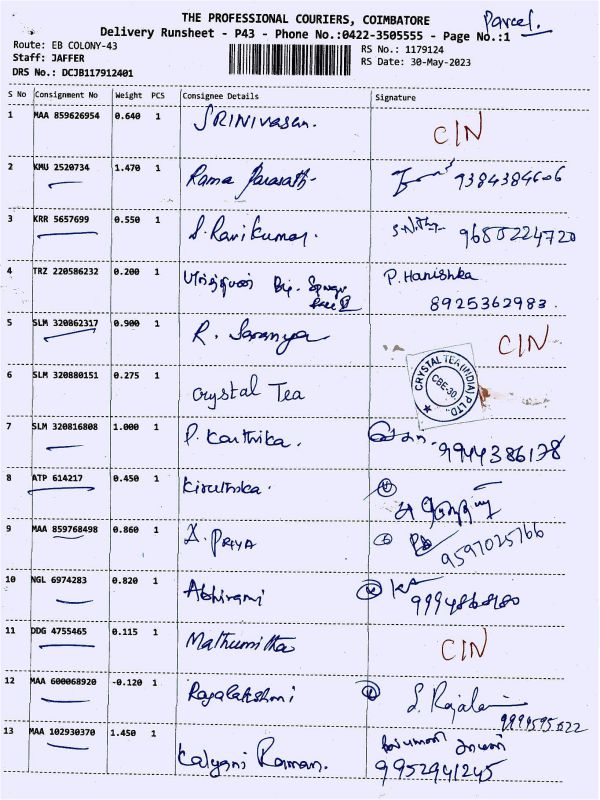 THE PROFESSIONAL COURIERS, COIMBATORE
Parcel.
Delivery Runsheet - P43 - Phone No.:0422-3505555 - Page No.:1
Route: EB COLONY-43
RS No.: 1179124
Staff: JAFFER
RS Date: 30-May-2023
DRS No.: DCJB117912401
S No Consignment No Weight PCS Consignee Details Signature
1 MAA 859626954 0.640 1 SRINIVasan. CIN
2 KMU 2520734 1.470 1 Rama 9384384606
3 KRR 5657699 0.550 1 S. Ravikumar. 9688224720
4 TRZ 220586232 0.200 1 P. Harishka
8925362983.
5 SLM 320862317 0.900 1 R. Saranya CIN
6 SLM 320880151 0.275 1 Crystal Tea CRYSTAL TEA (INDIA) P LTD. CBE-30.
7 SLM 320816808 1.000 1 P. Karthika. 9944386178
8 ATP 614217 0.450 1 Kiruthika.
9 MAA 859768498 0.860 1 PRIYA 9597025766
10 NGL 6974283 0.820 1 Abhirami
11 DDG 4755465 0.115 1 Mathumitha CIN
12 MAA 600068920 -0.120 1 Rajalakshmi S. Rajala
13 MAA 102930370 1.450 1 Kalyani Raman. 9952941245